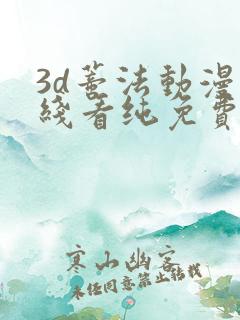 3d法動漫
綫看纯免費
寒山幽客
未经同意禁止转载